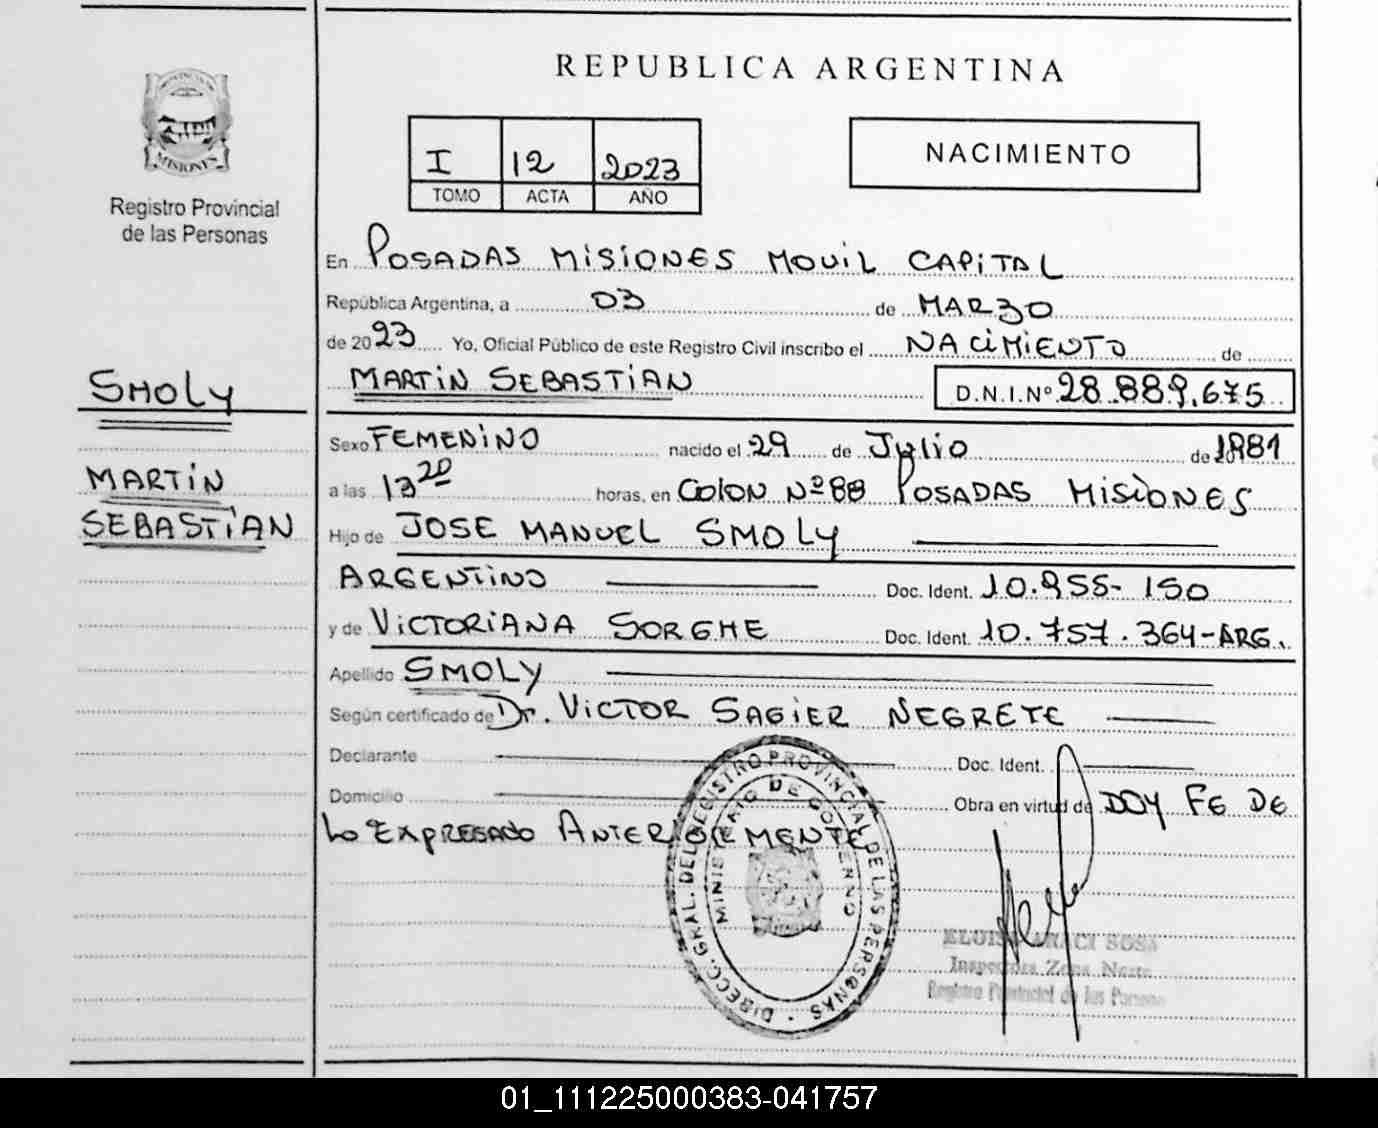 REPUBLICA ARGENTINA
MISIONES
Registro Provincial
de las Personas
I 12 2023
TOMO ACTA AÑO
NACIMIENTO
En POSADAS MISIONES MOVIL CAPITAL
República Argentina, a 03 de MARZO
de 2023 Yo, Oficial Público de este Registro Civil inscribo el NACIMIENTO de
MARTIN SEBASTIAN D.N.I.Nº 28.889.675
SMOLY
MARTIN
SEBASTIAN
Sexo FEMENINO nacido el 29 de Julio de 1981
a las 13 20 horas, en COLON Nº 88 POSADAS MISIONES
Hijo de JOSE MANUEL SMOLY
ARGENTINO Doc. Ident. 10.955-150
y de VICTORIANA SORGHE Doc. Ident. 10.757.364-ARG.
Apellido SMOLY
Según certificado de Dr. VICTOR SAGIER NEGRETE
Declarante Doc. Ident.
Domicilio Obra en virtud de DOY FE DE
LO EXPRESADO ANTERIORMENTE
DIRECC. GRAL. DEL REGISTRO PROVINCIAL DE LAS PERSONAS
MINISTERIO DE GOBIERNO
ARACI SOSA
Inspectora Zona Norte
Registro Provincial de las Persona
01_111225000383-041757